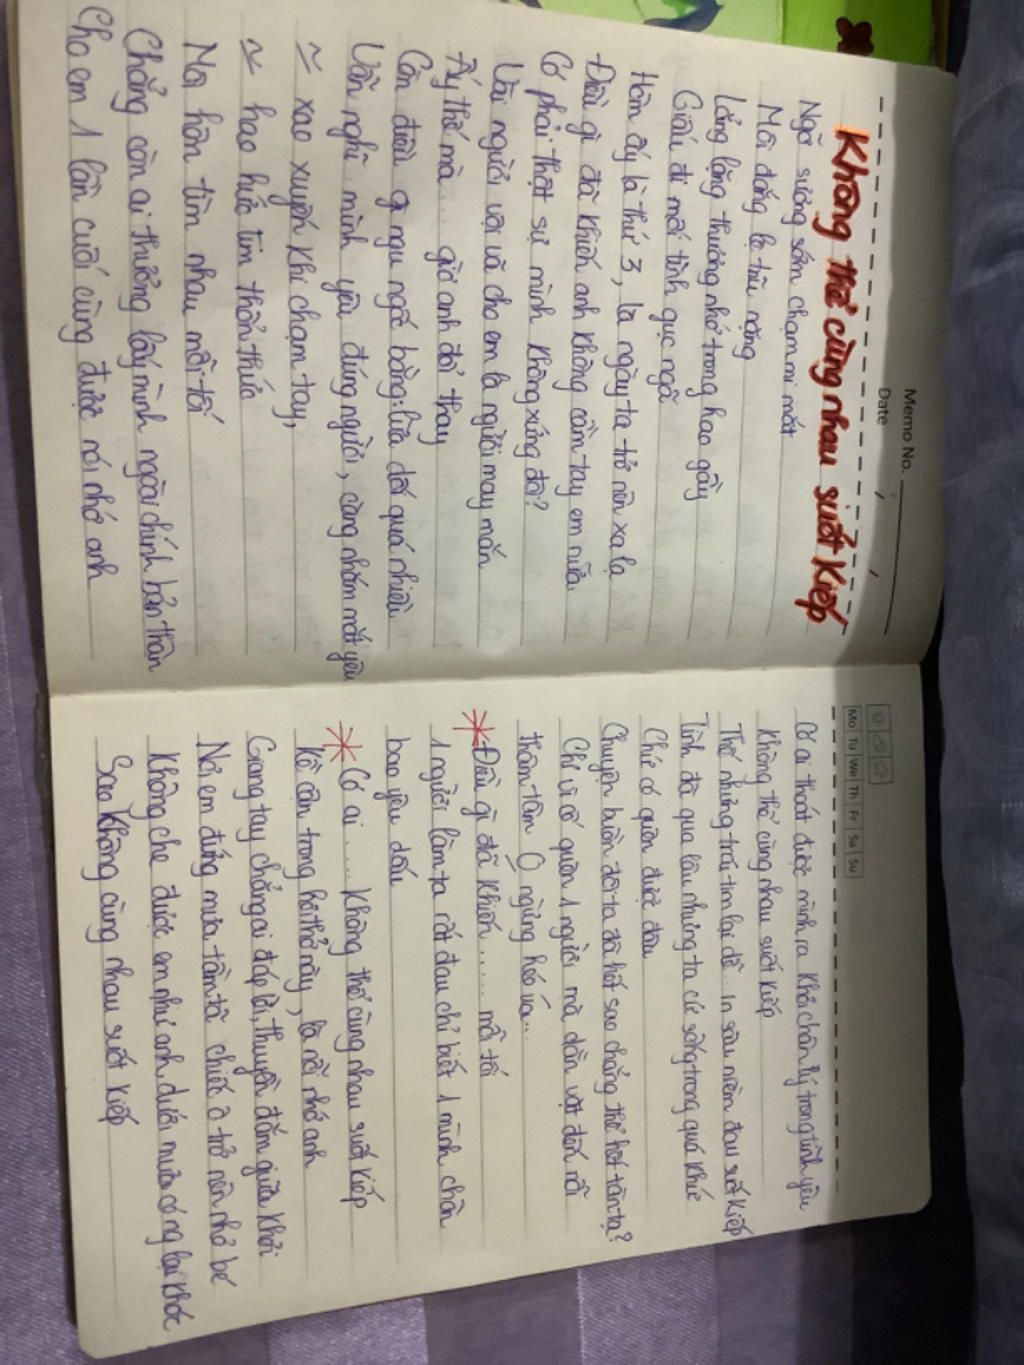 Memo No.
Date / /
Không thể cùng nhau suốt kiếp
Ngỡ sương sớm chạm mi mắt
Môi đắng lạ trĩu nặng
Lẳng lặng thương nhớ trong hao gầy
Giấu đi mối tình gục ngã
Hôm ấy là thứ 3, là ngày ta trở nên xa lạ
Điều gì đã khiến anh không cầm tay em nữa
Có phải thật sự mình không xứng đôi?
Vài người vội vã cho em là người may mắn
Ấy thế mà.... giờ anh đổi thay
Còn điều gì ngu ngốc bằng: lừa dối quá nhiều
Vẫn nghĩ mình yêu đúng người, càng nhắm mắt yêu
≃ xao xuyến khi chạm tay,
≃ hao hức tim thổn thức
Ma hôn tìm nhau mỗi tối
Chẳng còn ai thương lấy mình ngoài chính bản thân
Cho em 1 lần cuối cùng được nói nhớ anh
Mo Tu We Th Fr Sa Su
Có ai thoát được mình ra khỏi chân lý trong tình yêu
Không thể cùng nhau suốt kiếp
Thế nhưng trái tim lại để... in sâu niềm đau suốt kiếp
Tình đã qua lâu nhưng ta cứ sống trong quá khứ
Chứ có quên được đâu
Chuyện buồn đời ta đã hết sao chẳng thể hót tàn tạ?
Chỉ vì cố quên 1 người mà dằn vặt đến nỗi
thâm tâm Ô ngừng héo úa...
*Điều gì đã khiến...... mỗi tối
1 người làm ta rất đau chỉ biết 1 mình chôn
bao yêu dấu
*Có ai .... Không thể cùng nhau suốt kiếp
Kề cận trong hơi thở này, là nỗi nhớ anh
Giang tay chẳng ai đáp lời, thuyền đắm giữa khơi
Nơi em đứng mưa tầm tã chiếc ô trở nên nhỏ bé
Không che được em như anh, dưới mưa cóng lại khóc
Sao không cùng nhau suốt kiếp